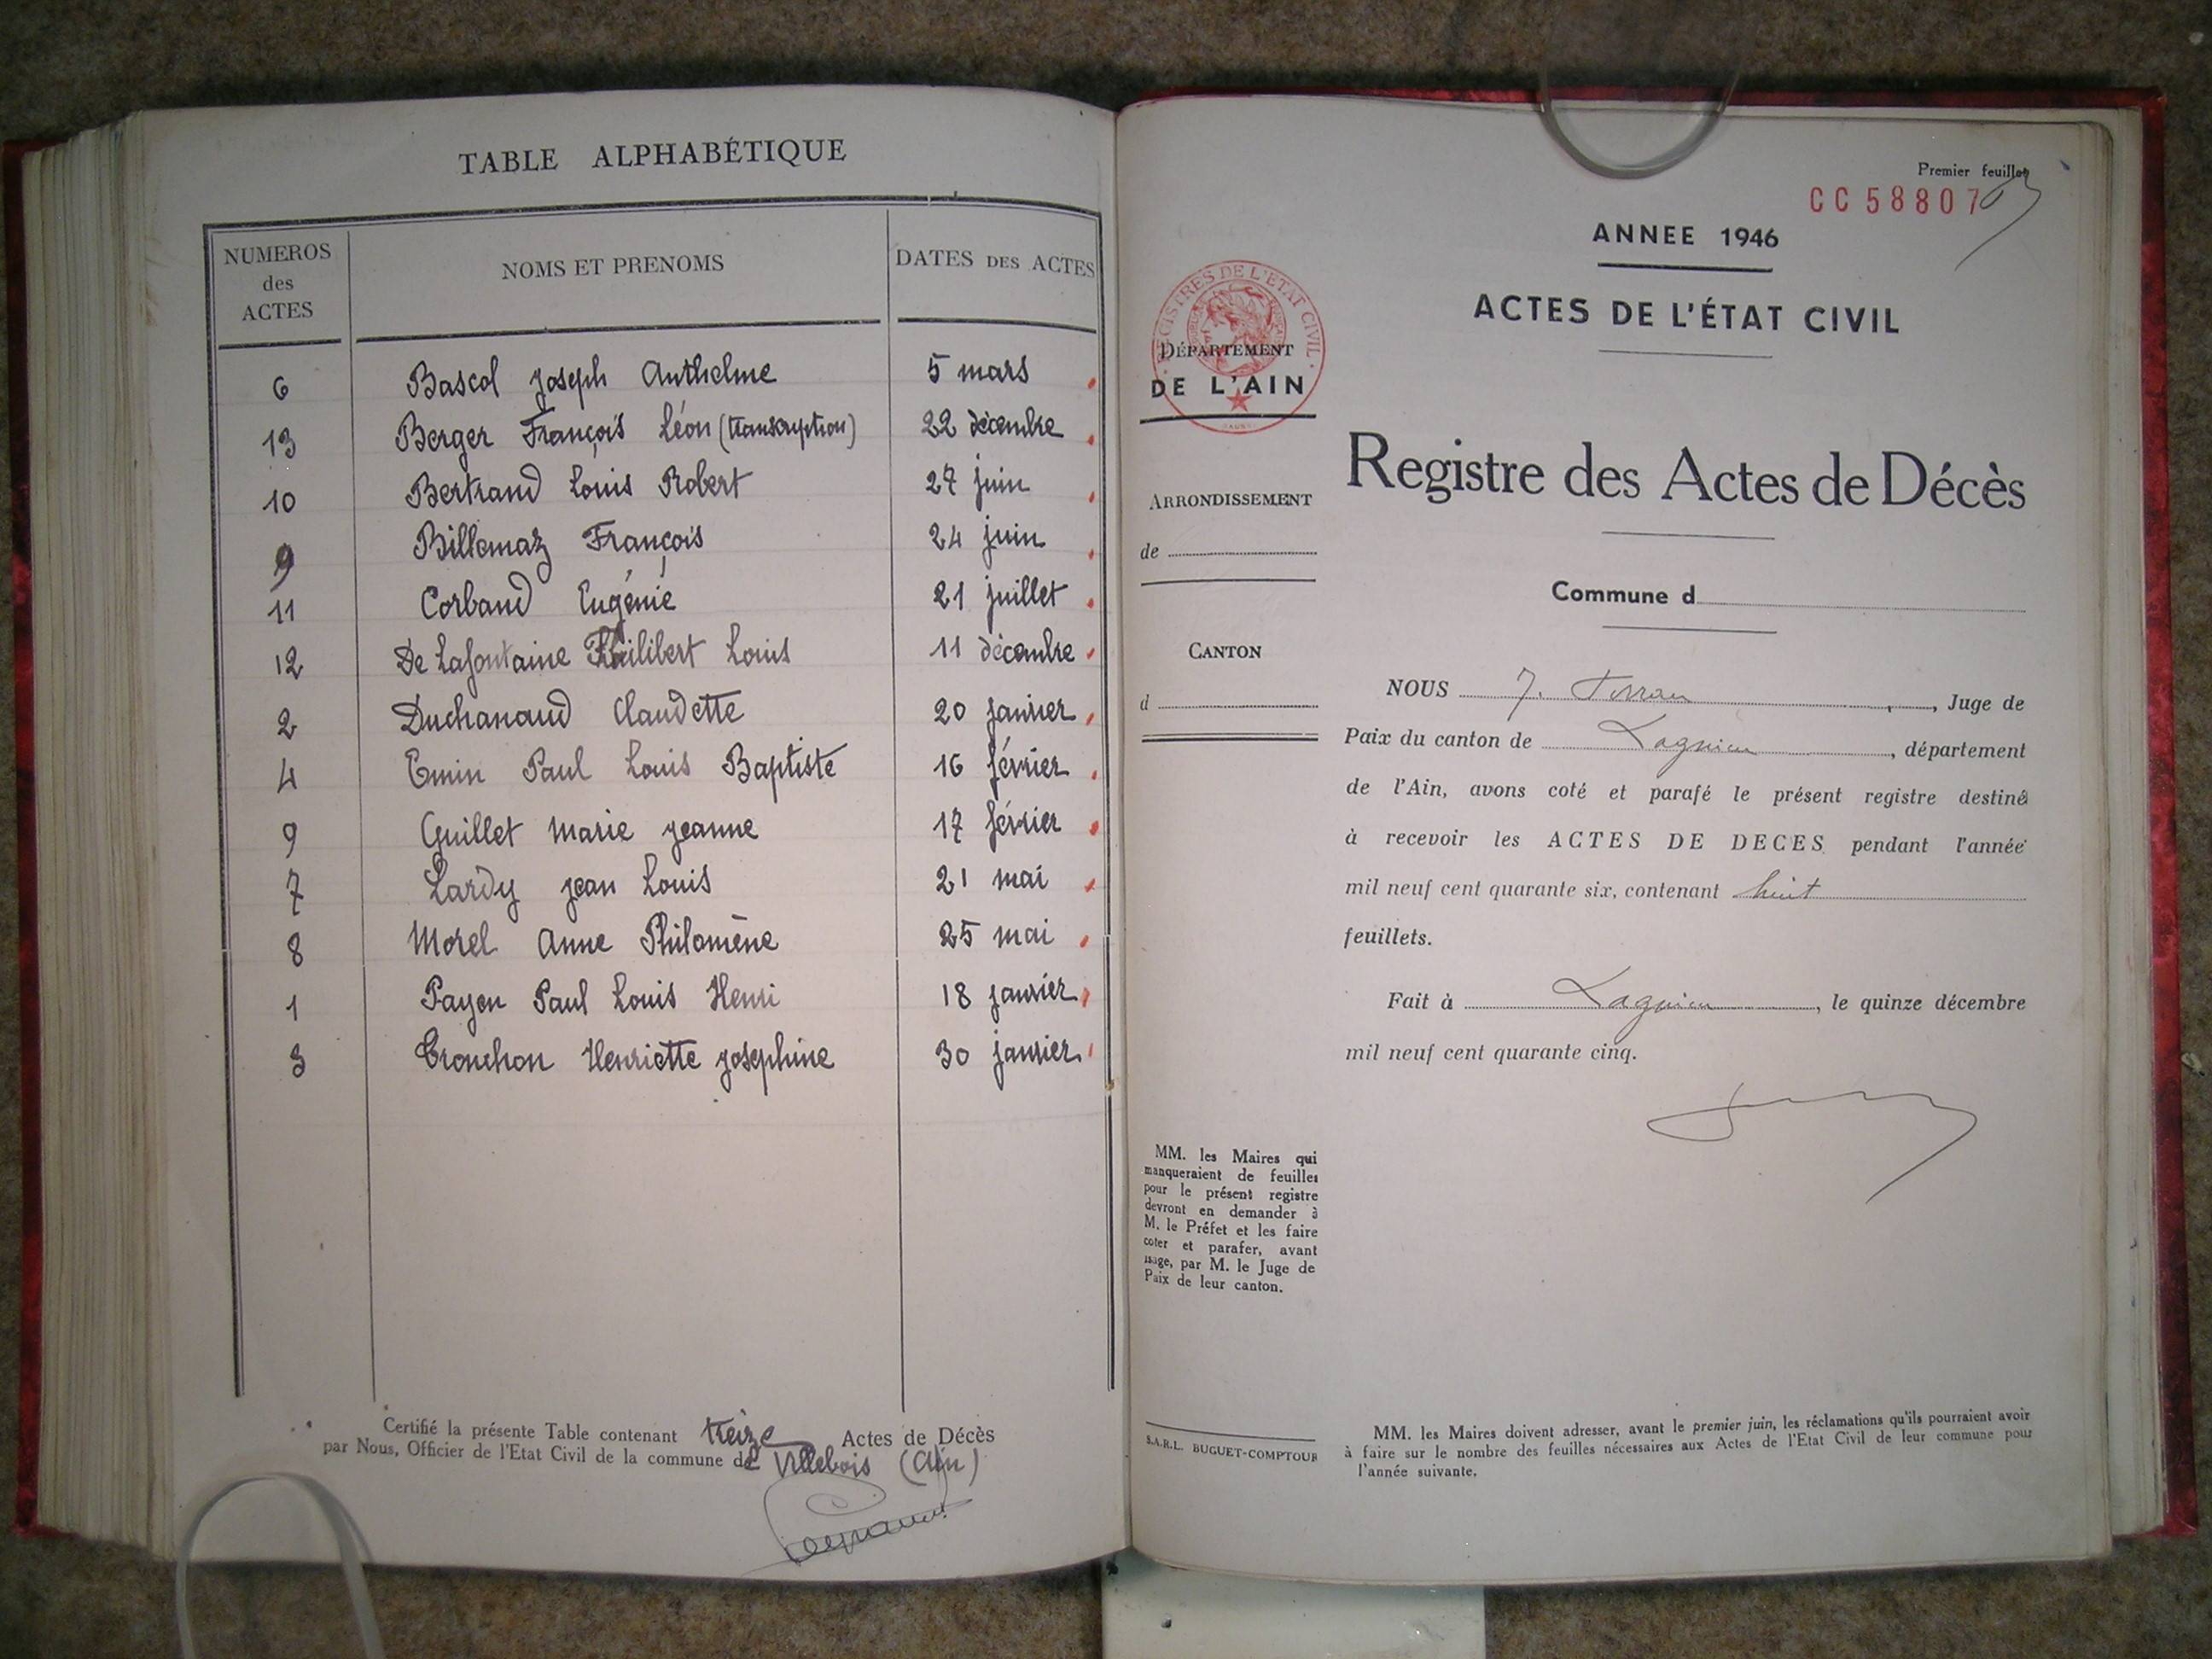 TABLE ALPHABÉTIQUE
NUMEROS des ACTES NOMS ET PRENOMS DATES DES ACTES
6 Bascol Joseph Anthelme 5 mars
13 Berger François Léon (transcription) 22 décembre
10 Bertrand Louis Robert 27 juin
9 Billemaz François 24 juin
11 Corband Eugénie 21 juillet
12 De Lafontaine Philibert Louis 11 décembre
2 Duchanaud Claudette 20 janvier
4 Emin Paul Louis Baptiste 16 février
9 Guillet Marie Jeanne 17 février
7 Lardy Jean Louis 21 mai
8 Morel Anne Philomène 25 mai
1 Payen Paul Louis Henri 18 janvier
3 Tronchon Henriette Josephine 30 janvier
Certifié la présente Table contenant treize Actes de Décès
par Nous, Officier de l'Etat Civil de la commune de Villebois (Ain)
Premier feuillet
CC 58807
ANNEE 1946
ACTES DE L'ÉTAT CIVIL
REGISTRES DE L'ETAT CIVIL
DÉPARTEMENT
DE L'AIN
Registre des Actes de Décès
ARRONDISSEMENT
de
Commune d
CANTON
d
NOUS J. , Juge de
Paix du canton de Lagnieu, département
de l'Ain, avons coté et parafé le présent registre destiné
à recevoir les ACTES DE DECES pendant l'année
mil neuf cent quarante six, contenant huit
feuillets.
Fait à Lagnieu, le quinze décembre
mil neuf cent quarante cinq.
MM. les Maires qui
manqueraient de feuilles
pour le présent registre
devront en demander à
M. le Préfet et les faire
coter et parafer, avant
usage, par M. le Juge de
Paix de leur canton.
S.A.R.L. BUGUET-COMPTOUR
MM. les Maires doivent adresser, avant le premier juin, les réclamations qu'ils pourraient avoir
à faire sur le nombre des feuilles nécessaires aux Actes de l'Etat Civil de leur commune pour
l'année suivante.